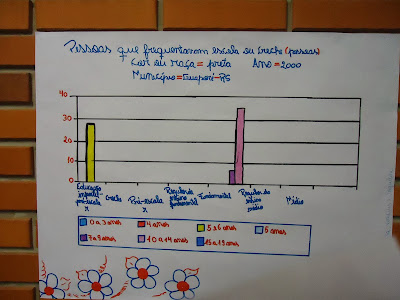 Pessoas que frequentavam escola ou creche (pessoas)
Cor ou raça = preta Ano = 2000
Município = Tupanci-RS
40
30
20
10
0
Educação
infantil
pré-escola
x
Creche
Pré-escola
x
Regular do
ensino
fundamental
Fundamental
Regular do
ensino
médio
Médio
0 a 3 anos
4 anos
5 e 6 anos
6 anos
7 a 9 anos
10 a 14 anos
15 a 19 anos